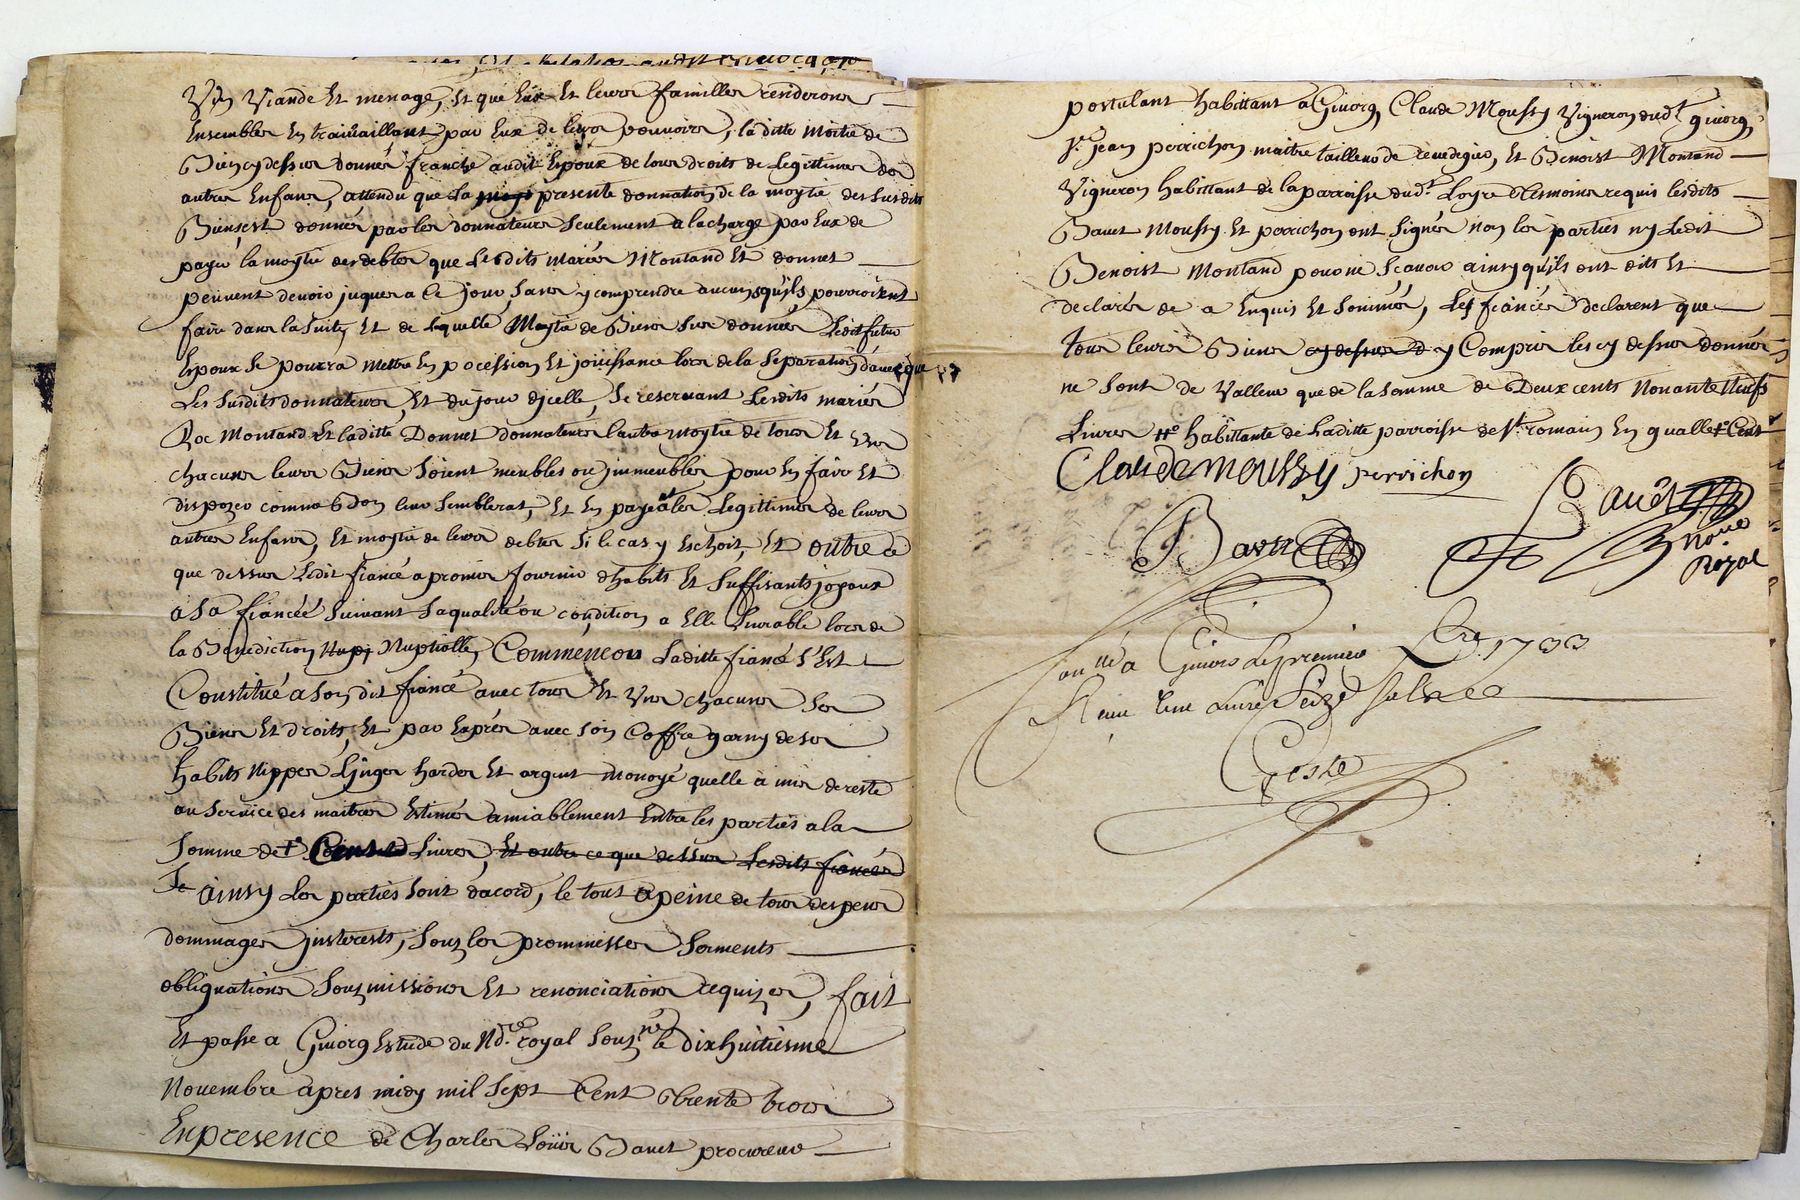 Vin Viande Et menage, Et que Eux Et leurs familles renderons
Ensembles En travaillant par Eux de leurs pouvoirs, la ditte moitié de
Biens cy dessus donnés franche audit Epoux de tous droits de Legittimes des
autres Enfans, attendu que La presente donnation de la moytié des susdits
Biens, est donnés par les donnateurs seulement a la charge par Eux de
payer la moytié des debtes que Lesdits mariés Montand Et donnet
peuvent devoir jusques a Ce jour, sans y comprendre aucuns qu'ils pourroient
faire dans la suite, Et de Laquelle Moytié de Biens sus donnés Ledit futur
Epoux se pourra mettre En pocession Et jouissance lors de la separation d'avecque
Les susdits donnateurs, Et du jour d'jcelle, se reservant Lesdits mariés
Roc Montand Et la ditte Donnet donnateurs l'autre moytié de tous Et Uns
chacuns leurs Biens soient meubles ou jmmeubles, pour En faire Et
dispozer comme Bon leur semblerat, Et En payer les Legittimes de leurs
autres Enfans, Et moytié de leurs debtes si le cas y Eschoit, Et outre ce
que dessus Ledit fiancé a promis fournir d'habits Et suffisants joyaux
a sa fiancéé suivant sa qualité ou condition a Elle Livrable lors de
la Benediction Nup Nuptialle, Commencon Laditte fiancé s'Est
Constitué a son dit fiancé avec tous Et Uns chacuns ses
Biens Et droits, Et par Exprés avec son Coffre garny de ses
habits Nippes Linges hardes Et argent monoyé quelle à mis de reste
au Service des maitres Estimés amiablement Entre les parties a la
somme de Livres, Et outre ce que dessus Lesdits fiancés
ainsy Les parties sont d'acord, le tout a peine de tous despens
dommages jnterests, Souz les prommesses serments
obliguations Souzmissions Et renonciations requizes, fait
Et passé a Givors Estude du Nore royal Souzne le dixhuitiesme
Novembre apres midy mil sept Cent trente trois
En presence de Charles Loüis Bavet procureur
postulant habittant a Givors, Claude Moussy Vigneron dudt givors,
sr jean perrichon maitre tailleur de rivedegier, Et Benoist Montand
Vigneron habittant de la parroisse dudt Loyre tesmoins requis lesdits
Bavet Moussy Et perrichon ont signés non les parties ny Ledit
Benoist Montand pour ne scavoir ainsy qu'ils ont ditt Et
declarés de a Enquis Et sommés, Les fiancés declarent que
tous leurs Biens cy dessus d y Compris les cy dessus donnés
ne sont de Valleur que de la somme de Deux cents Nonante Neufs
Livres habittante de Laditte parroisse de st romain En quallet Cent
Claude moussy perrichon
Bavet
nore
Royal
a Givors Le premier Xbre 1733
Livre Seize sols
Geste